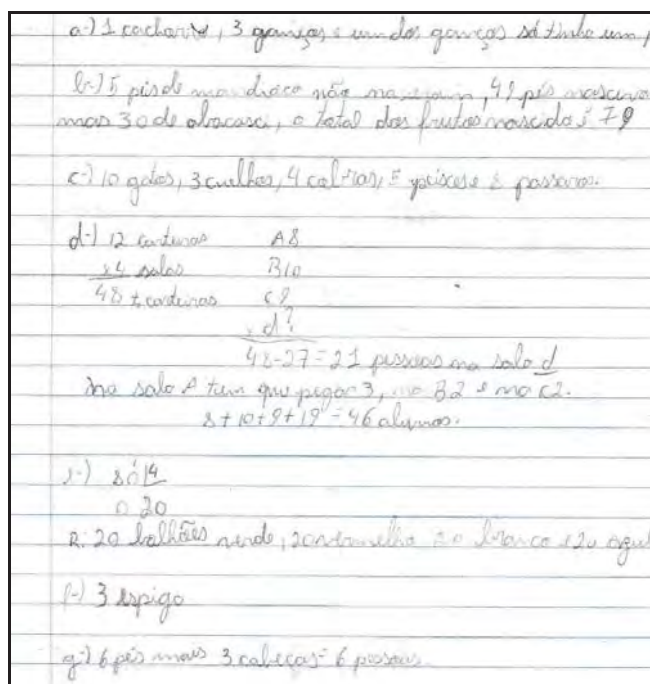 a-) 1 cachorro, 3 gansos e um dos gansos só tinha um p
b-) 5 pés de mandioca não nasceram, 49 pés nasceram
mas 30 de abacaxi, o total das frutas nascido é 79
c-) 10 gatos, 3 cuelhos, 4 cabras, 5 peixes e 8 passaros.
d-) 12 carteiras A8
x4 salas B10
48 t. carteiras C9
d?
48-27=21 pessoas na sala d
na sala A tem que pegar 3, no B2 e no C2.
8+10+9+19=46 alunos.
e-) 80 4
0 20
R: 20 balhões verde, 20 vermelho 20 branco e 20 azul
f-) 3 espiga
g-) 6 pés mais 3 cabeças= 6 pessoas.